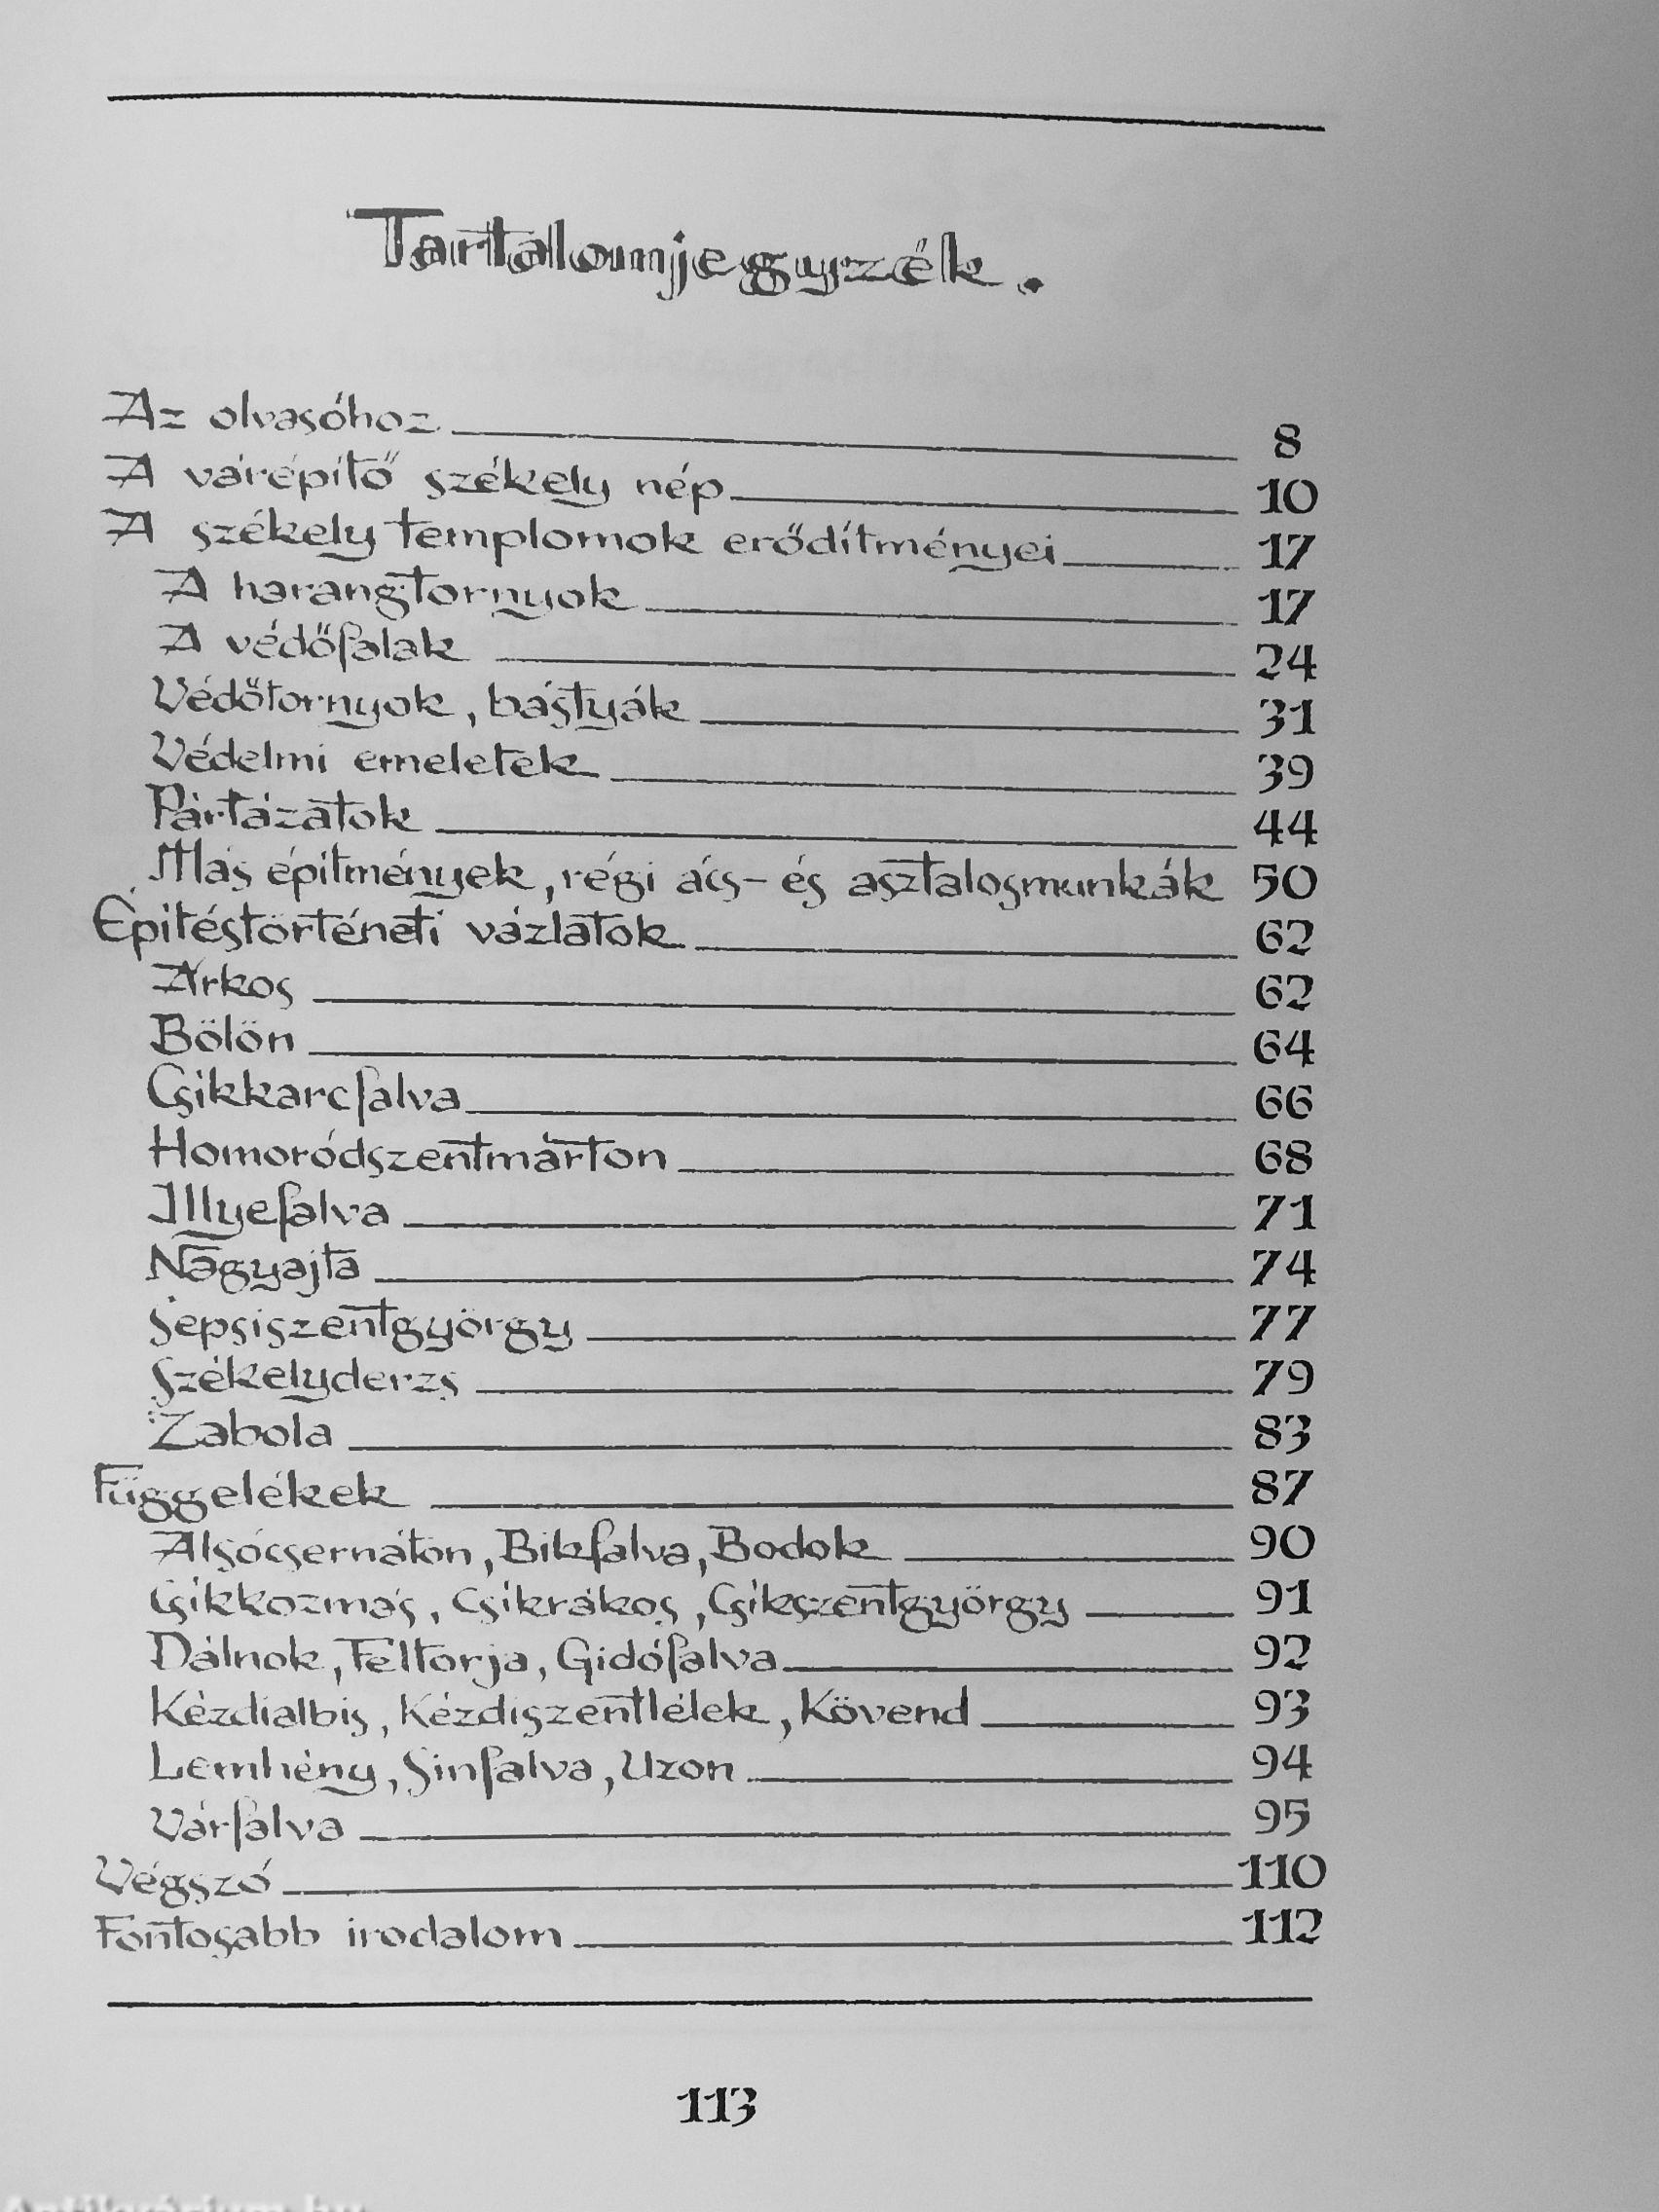 Tartalomjegyzék.
Az olvasóhoz 8
A várépítő székely nép 10
A székely templomok erődítményei 17
A harangtornyok 17
A védőfalak 24
Védőtornyok, bástyák 31
Védelmi emeletek 39
Pártázatok 44
Más építmények, régi ács- és asztalosmunkák 50
Építéstörténeti vázlatok 62
Árkos 62
Bölön 64
Csikkarcfalva 66
Homoródszentmárton 68
Illyefalva 71
Nagyajta 74
Sepsiszentgyörgy 77
Székelyderzs 79
Zabola 83
Függelékek 87
Alsócsernáton, Bikfalva, Bodok 90
Csikkozmás, Csikrákos, Csikszentgyörgy 91
Dálnok, Feltorja, Gidófalva 92
Kézdialbis, Kézdiszentlélek, Kövend 93
Lemhény, Sinfalva, Uzon 94
Várfalva 95
Végszó 110
Fontosabb irodalom 112
113